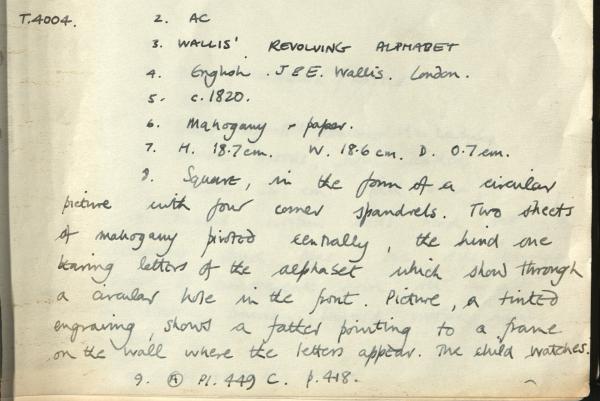 T.4004. 2. AC
3. WALLIS' REVOLVING ALPHABET
4. English. J & E. Wallis. London.
5. c.1820.
6. Mahogany + paper.
7. H. 18.7cm. W. 18.6 cm. D. 0.7cm.
8. Square, in the form of a circular
picture with four corner spandrels. Two sheets
of mahogany pivoted centrally, the hind one
bearing letters of the alphabet which show through
a circular hole in the front. Picture, a tinted
engraving, shows a father pointing to a frame
on the wall where the letters appear. The child watches.
9. (A) Pl. 449 C. p.418.